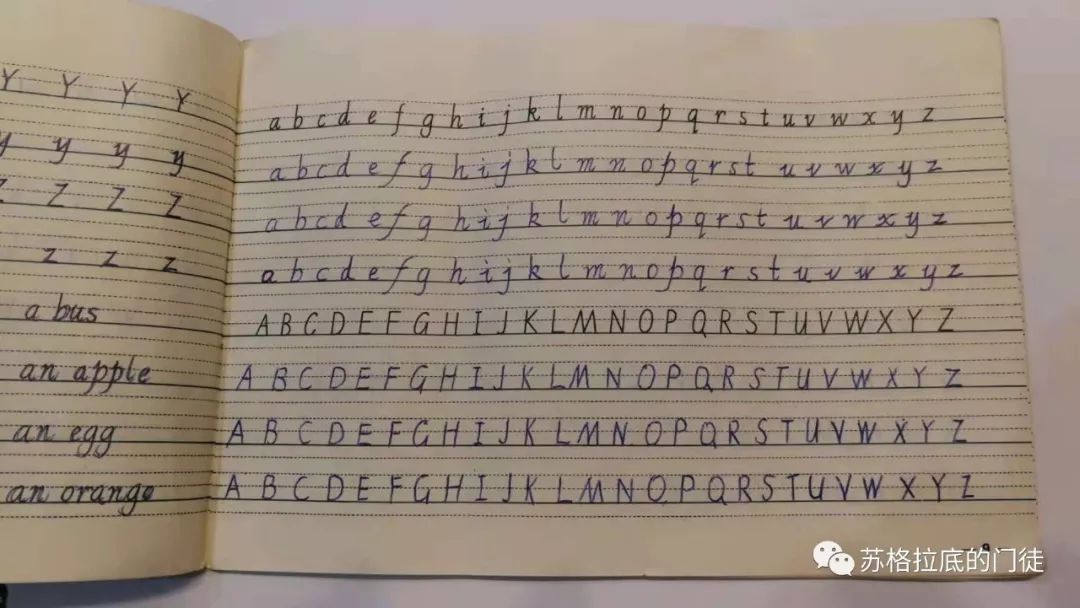 Y Y Y Y
y y y y
Z Z Z Z
z z z
a bus
an apple
an egg
an orange
a b c d e f g h i j k l m n o p q r s t u v w x y z
a b c d e f g h i j k l m n o p q r s t u v w x y z
a b c d e f g h i j k l m n o p q r s t u v w x y z
a b c d e f g h i j k l m n o p q r s t u v w x y z
A B C D E F G H I J K L M N O P Q R S T U V W X Y Z
A B C D E F G H I J K L M N O P Q R S T U V W X Y Z
A B C D E F G H I J K L M N O P Q R S T U V W X Y Z
A B C D E F G H I J K L M N O P Q R S T U V W X Y Z
苏格拉底的门徒